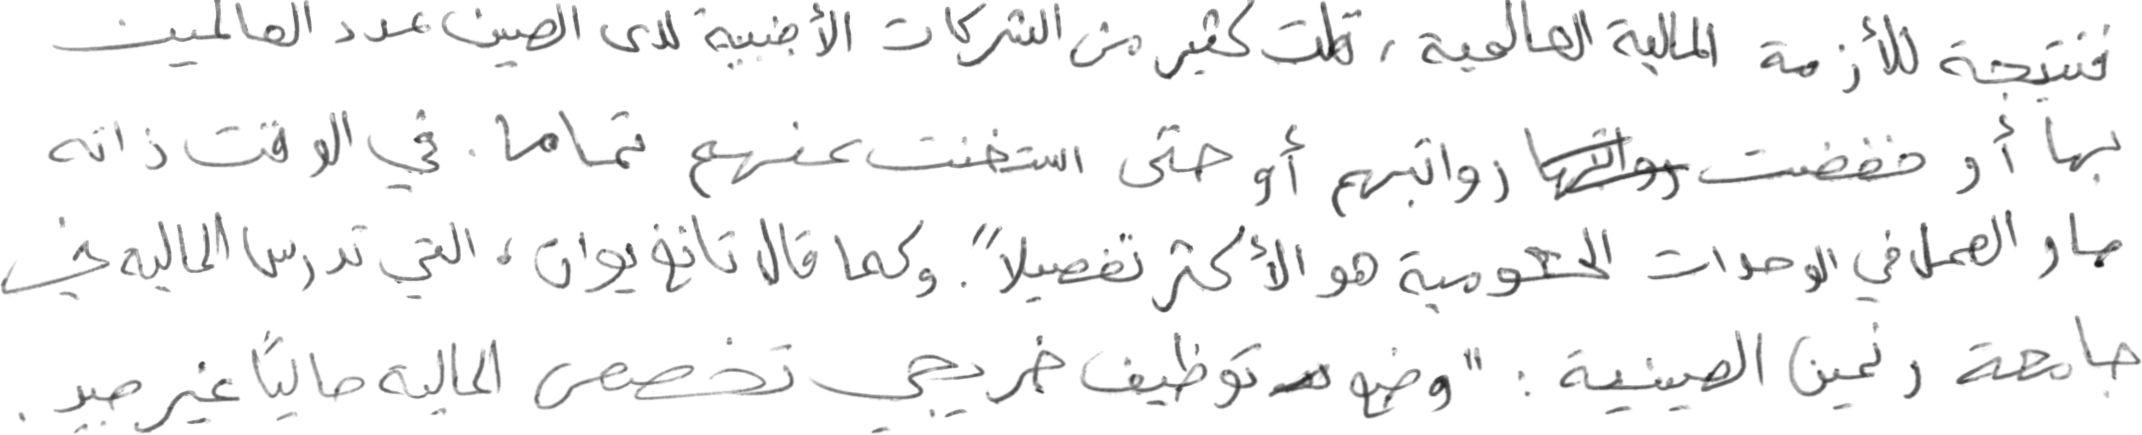 فنتيجة للأزمة المالية العالمية، قللت كثير من الشركات الأجنبية لدى الصين عدد العالمين
بها أو خفضت رواتبهم أو حتى استغنت عنهم تماما. في الوقت ذاته
صار العمل في الوحدات الحكومية هو الأكثر تفضيلا". وكما قال تانغ يوان، التي تدرس المالية في
جامعة رنمين الصينية: "وضع توظيف خريجي تخصص المالية حاليًا غير جيد.